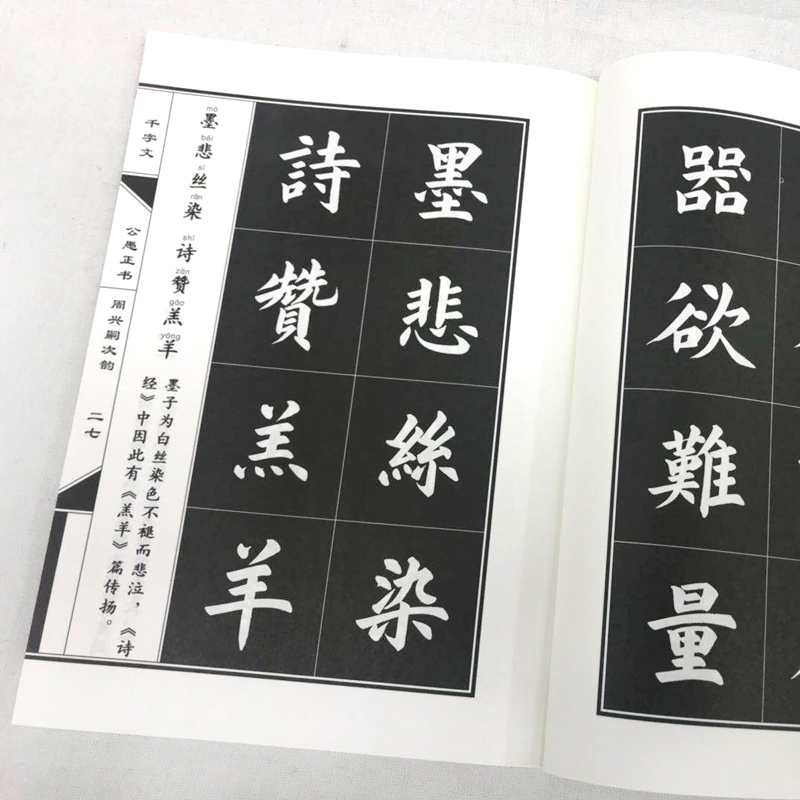 器欲難量
墨悲絲染
詩贊羔羊
mò bēi sī rǎn shī zàn gāo yáng
墨悲丝染 诗赞羔羊
墨子为白丝染色不褪而悲泣，《诗
经》中因此有《羔羊》篇传扬。
千字文
公愚正书
周兴嗣次韵
二七